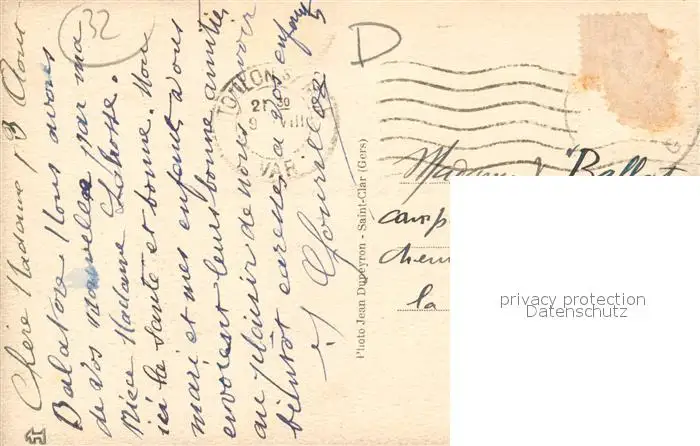 32
D
Chère Madame, 13 Aout
Balatore. Nous avons
de vos nouvelles par ma
Nièce Madame
ici la santé et bonne. Mon
mari et mes enfants vous
envoient leurs bonne amitiés
au plaisir de nous revoir
bientôt caresse a vos enfants
TOULON
VAR
Photo Jean Dupeyron - Saint-Clar (Gers)
Madame
camp
chem
la
privacy protection
Datenschutz